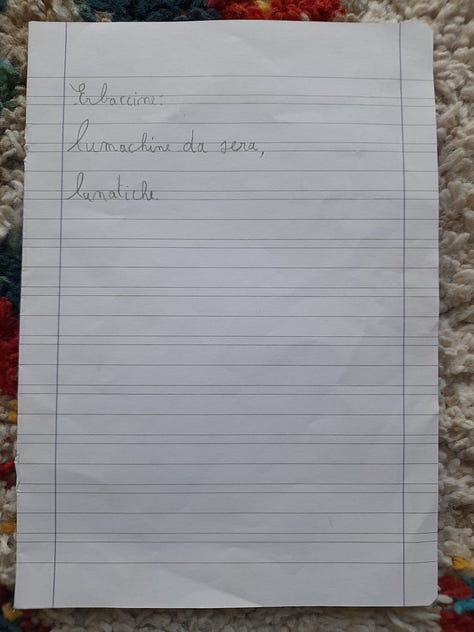 Erbaccine:
lumachine da sera,
lunatiche.